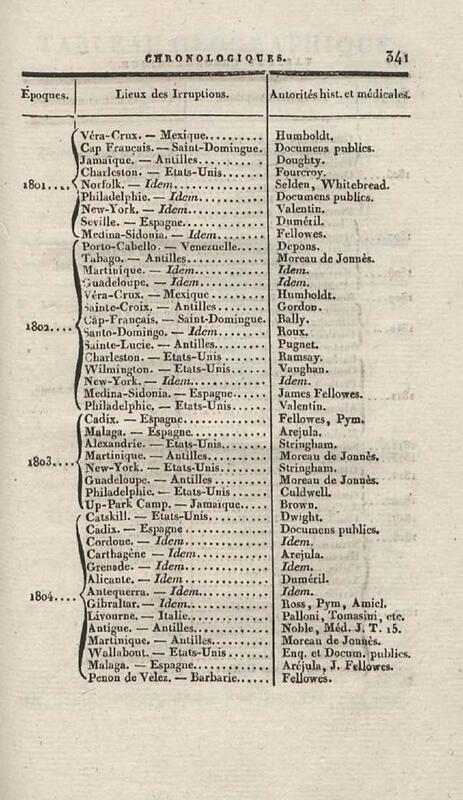 CHRONOLOGIQUES. 341
Époques. Lieux des Irruptions. Autorités hist. et médicales.
Véra-Crux. — Mexique.......... Humboldt.
Cap Français. — Saint-Domingue. Documens publics.
Jamaïque. — Antilles.......... Doughty.
Charleston. — Etats-Unis........ Fourcroy.
1801.... Norfolk. — Idem............... Selden, Whitebread.
Philadelphie. — Idem........... Documens publics.
New-York. — Idem............. Valentin.
Séville. — Espagne............. Duméril.
Medina-Sidonia. — Idem........ Fellowes.
Porto-Cabello. — Venezuelle..... Depons.
Tabago. — Antilles............. Moreau de Jonnès.
Martinique. — Idem............ Idem.
Guadeloupe. — Idem........... Idem.
Véra-Crux. — Mexique......... Humboldt.
Sainte-Croix. — Antilles........ Gordon.
Cap-Français. — Saint-Domingue. Bally.
1802.... Santo-Domingo. — Idem........ Roux.
Sainte-Lucie. — Antilles........ Pugnet.
Charleston. — Etats-Unis....... Ramsay.
Wilmington. — Etats-Unis...... Vaughan.
New-York. — Idem............. Idem.
Medina-Sidonia. — Espagne..... James Fellowes.
Philadelphie. — Etats-Unis...... Valentin.
Cadix. — Espagne.............. Fellowes, Pym.
Malaga. — Espagne............ Arejula.
Alexandrie. — Etats-Unis....... Stringham.
Martinique. — Antilles......... Moreau de Jonnès.
1803.... New-York. — Etats-Unis........ Stringham.
Guadeloupe. — Antilles........ Moreau de Jonnès.
Philadelphie. — Etats-Unis...... Culdwell.
Up-Park Camp. — Jamaïque.... Brown.
Catskill. — Etats-Unis.......... Dwight.
Cadix. — Espagne............. Documens publics.
Cordoue. — Idem.............. Idem.
Carthagène — Idem............ Arejula.
Grenade. — Idem.............. Idem.
Alicante. — Idem.............. Duméril.
Antequerra. — Idem........... Idem.
1804.... Gibraltar. — Idem............. Ross, Pym, Amiel.
Livourne. — Italie............. Palloni, Tomasini, etc.
Antigue. — Antilles............ Noble, Méd. J. T. 15.
Martinique. — Antilles......... Moreau de Jonnès.
Wallabout. — Etats-Unis....... Enq. et Docum. publics.
Malaga. — Espagne............ Aréjula, J. Fellowes.
Penon de Velez. — Barbarie...... Fellowes.